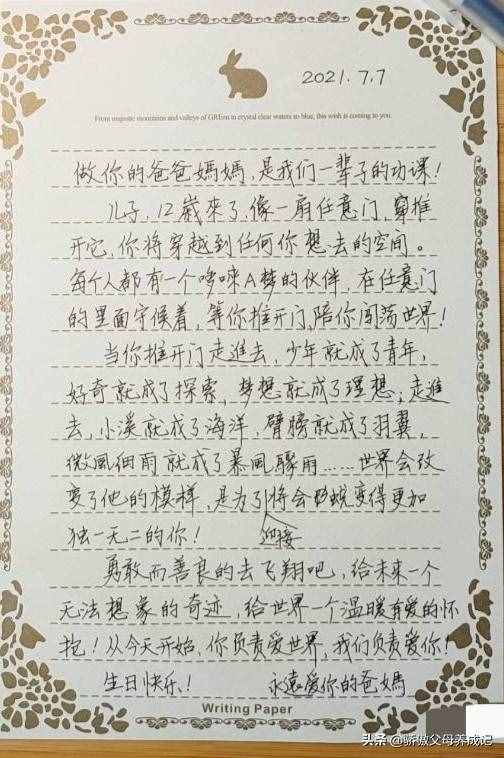 2021.7.7
From majestic mountains and valleys of GREen to crystal clear waters so blue, this wish is coming to you.
做你的爸爸媽媽,是我们一辈子的功课!
儿子,12歲來了,像一扇任意门,穿推
开它,你将穿越到任何你想去的空间。
每个人都有一个哆啦A梦的伙伴,在任意门
的里面守候着,等你推开门,陪你闯荡世界!
当你推开门走進去,少年就成了青年,
好奇就成了探索,梦想就成了理想;走進
去,小溪就成了海洋,臂膀就成了羽翼,
微風细雨就成了暴風驟雨……世界会改
变了他的模样,是为了将会蜕变得更加
迎接
独一无二的你!
勇敢而善良的去飞翔吧,给未来一个
无法想象的奇迹,给世界一个温暖有爱的怀
抱!从今天开始,你负责爱世界,我们负责爱你!
生日快乐! 永遠爱你的爸媽
Writing Paper
头条 @骄傲父母养成记